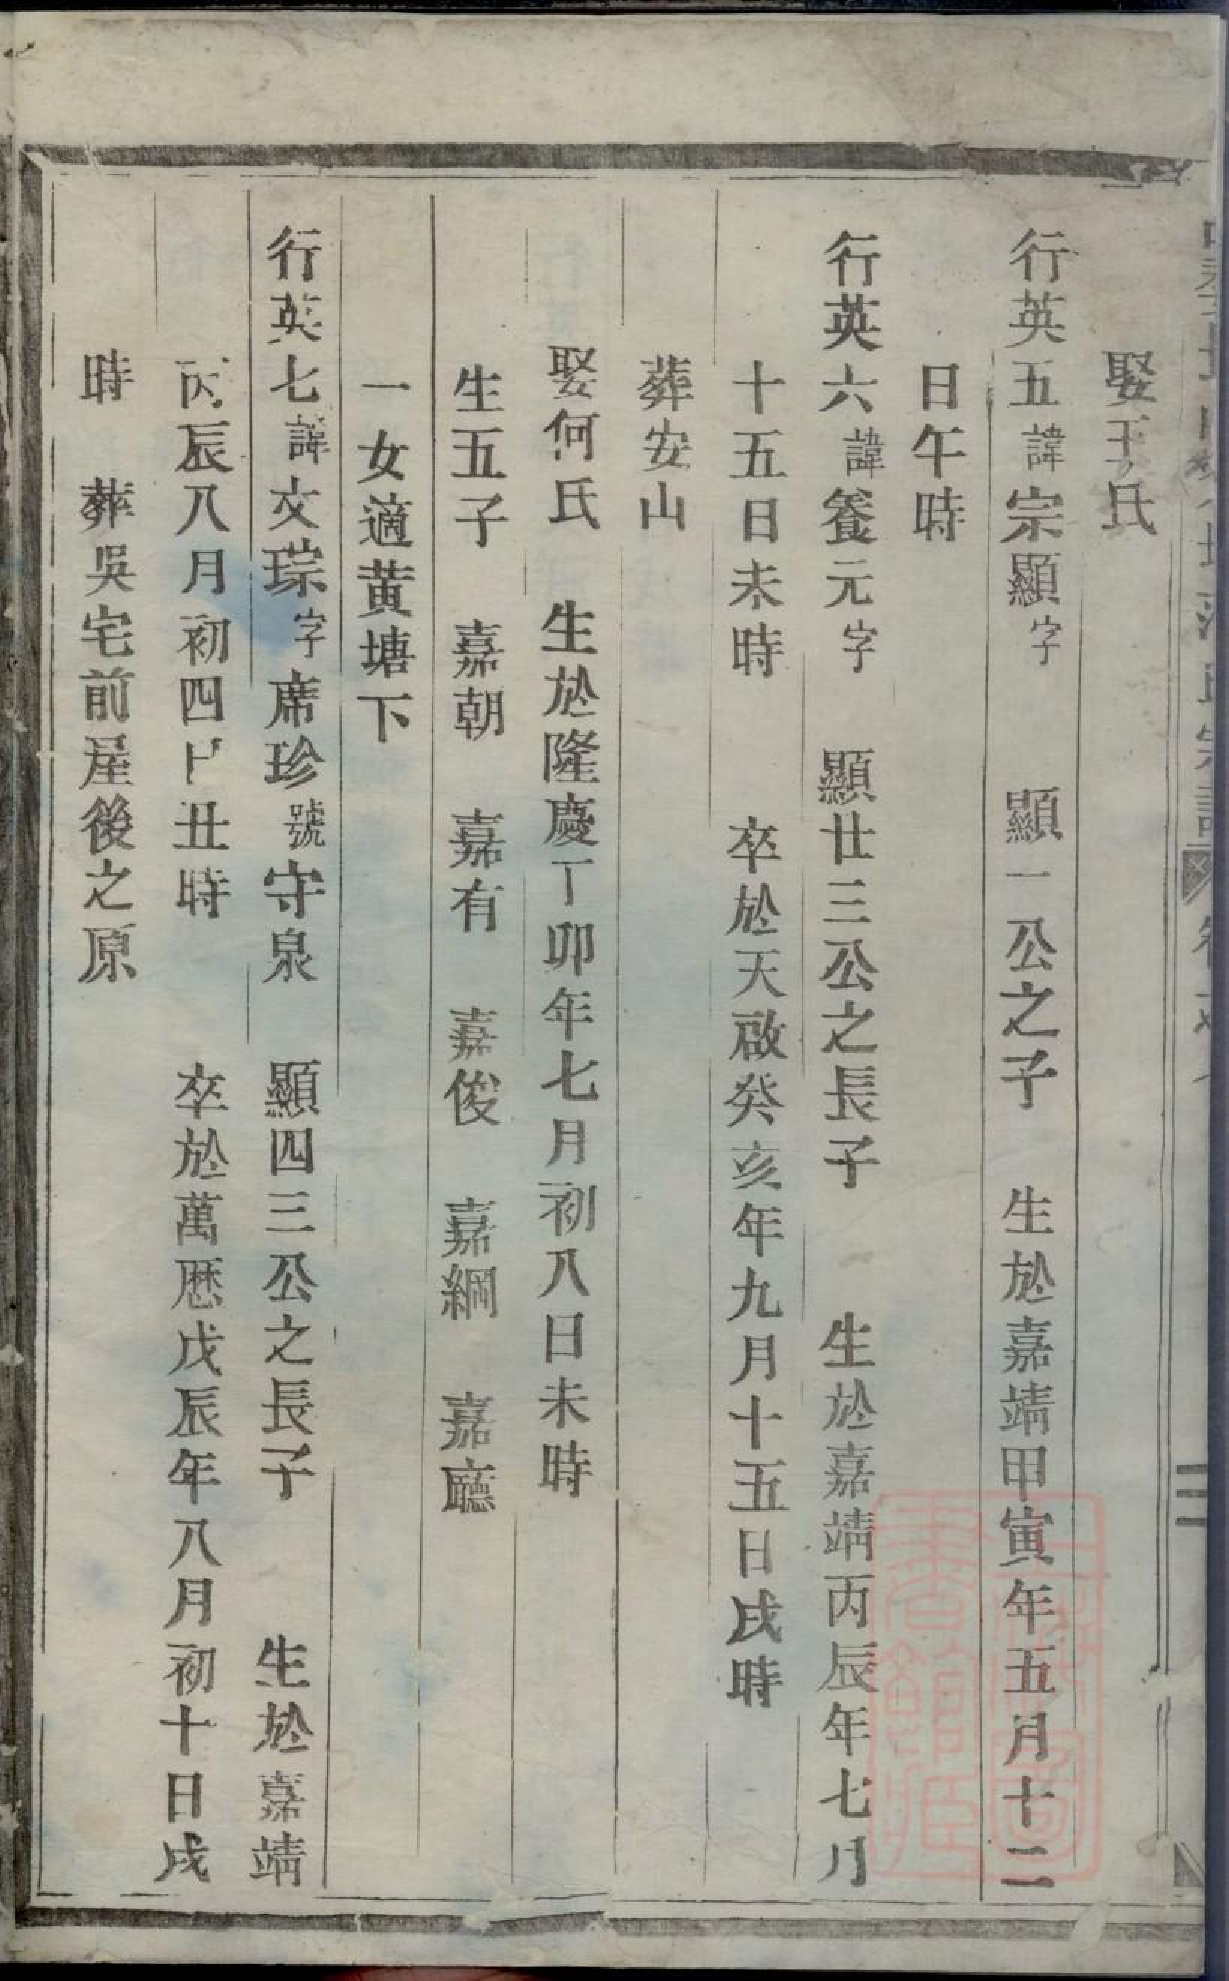 娶王氏
行英五諱宗顯字　顯一公之子　生於嘉靖甲寅年五月十二
日午時
行英六諱養元字　顯廿三公之長子　生於嘉靖丙辰年七月
十五日未時　卒於天啟癸亥年九月十五日戌時
葬安山
娶何氏　生於隆慶丁卯年七月初八日未時
生五子　嘉朝　嘉有　嘉俊　嘉綱　嘉廳
一女適黃塘下
行英七諱文琮字席珍號守泉　顯四三公之長子　生於嘉靖
丙辰八月初四日丑時　卒於萬歷戊辰年八月初十日戌
時　葬吳宅前屋後之原